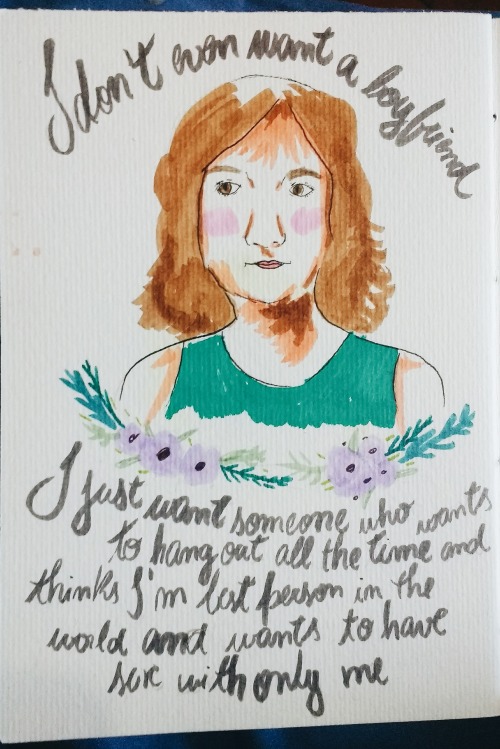 I don't even want a boyfriend
I just want someone who wants
to hang out all the time and
thinks I'm best person in the
world and wants to have
sex with only me